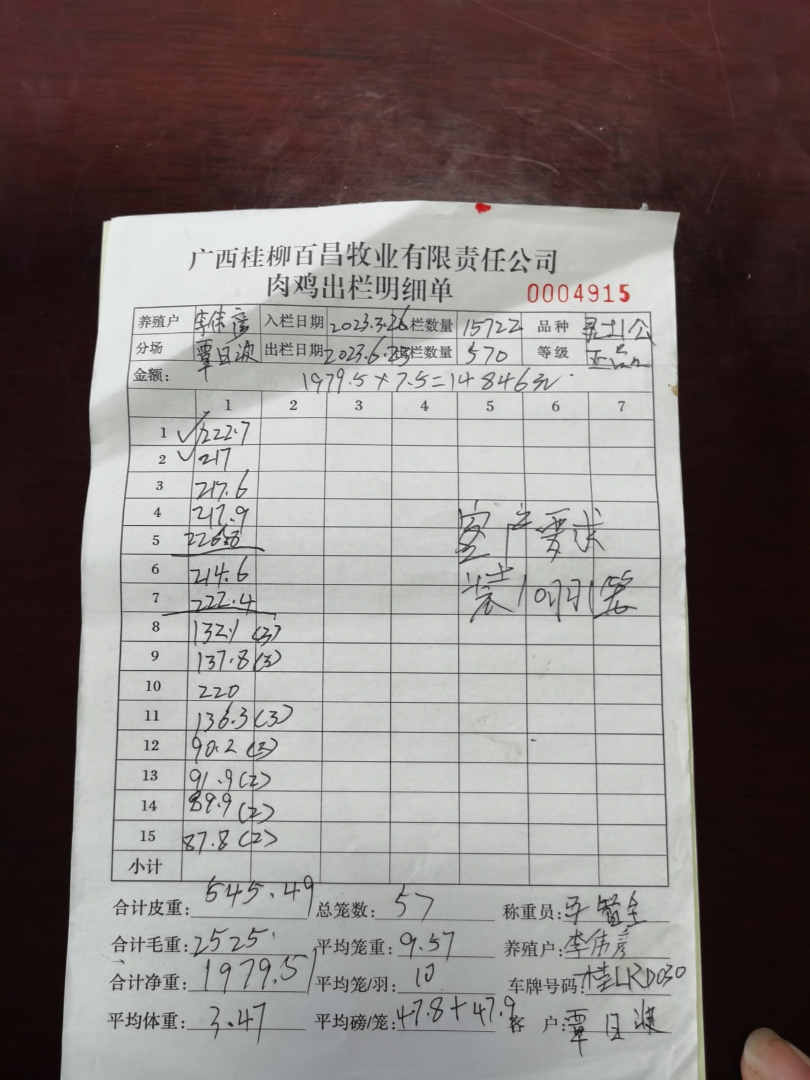 广西桂柳百昌牧业有限责任公司
肉鸡出栏明细单 0004915
养殖户 李伟彦 入栏日期 2023.3.26 栏数量 15722 品种
分场 覃日 出栏日期 2023.6.23 栏数量 570 等级 正品
金额: 1979.5×7.5=14846元
1 2 3 4 5 6 7
1 ✓ 222.7
2 ✓ 217
3 217.6
4 217.9
5
6 214.6
7 222.4
8 132.1 (3)
9 137.8 (3)
10 220
11 136.3 (3)
12 90.2
13 91.9 (2)
14 89.9 (2)
15 87.8 (2)
客户要求
装10羽1笼
小计
合计皮重: 545.49 总笼数: 57 称重员:
合计毛重: 2525 平均笼重: 9.57 养殖户: 李伟彦
合计净重: 1979.51 平均笼/羽: 10 车牌号码: 桂LRD030
平均体重: 3.47 平均磅/笼: 47.8+47.9 客户: 覃日